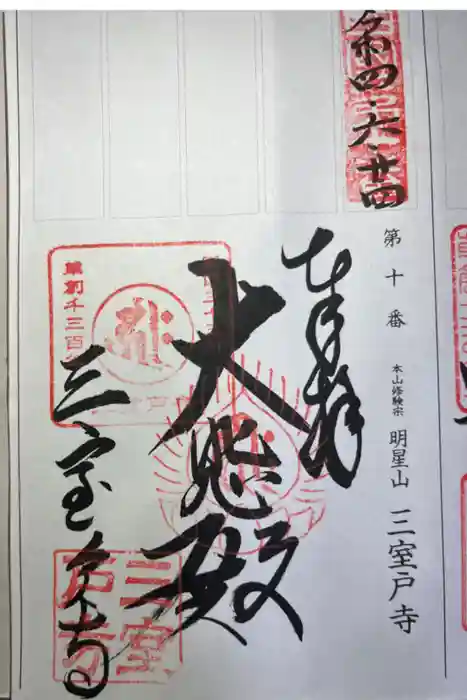 令和四・六・廿四
第十番 本山修験宗 明星山 三室戸寺
奉拝
大悲殿
三室戸寺
草創千三百
三室戸寺